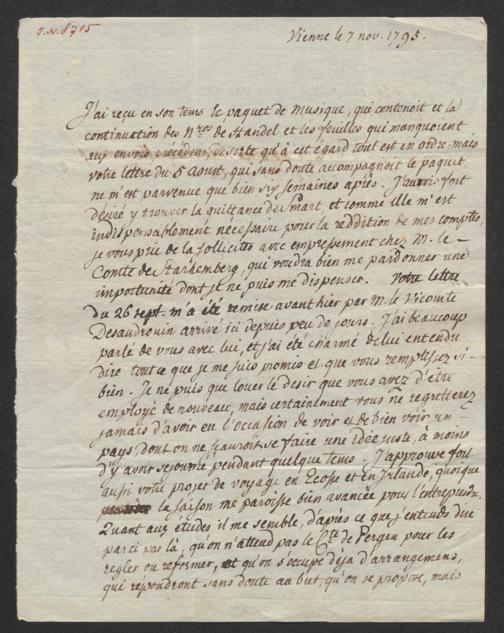 I.N. 8715
Vienne le 7 nov. 1795.
J'ai reçu en son tems le paquet de Musique, qui contenoit et la
continuation des Nros de Handel et les feuilles qui manquoient
aux envois précédens, desorte qu'à cet égard tout est en ordre, mais
votre lettre du 5 Aout, qui sans doute accompagnoit le paquet,
ne m'est parvenue que bien six semaines après. J'aurois fort
désiré y trouver la quittance de Smart, et comme elle m'est
indispensablement nécessaire pour la reddition de mes comptes,
je vous prie de la solliciter avec empressement chez M. le
Comte de Starhemberg, qui voudra bien me pardonner une
importunité dont je ne puis me dispenser. Votre lettre
du 26 sept. m'a été remise avant hier par M. le Vicomte
Desandrouin arrivé ici depuis peu de jours. J'ai beaucoup
parlé de vous avec lui, et j'ai été charmé de lui entendre
dire tout ce que je me suis promis et que vous remplissez si
bien. Je ne puis que louer le desir que vous avez d'être
employé de nouveau, mais certainement vous ne regretterez
jamais d'avoir eu l'occasion de voir et de bien voir un
pays, dont on ne sauroit se faire une idée juste, à moins
d'y avoir sejourné pendant quelque tems. J'approuve fort
aussi votre projet de voyage en Ecosse et en Irlande, quoique
la saison me paroisse bien avancée pour l'entreprendre.
Quant aux études il me semble, d'après ce que j'entends dire
par ci par là, qu'on n'attend pas le Cte de Pergen pour les
regler ou reformer, et qu'on s'occupe déja d'arrangemens,
qui répondront sans doute au but, qu'on se propose, mais